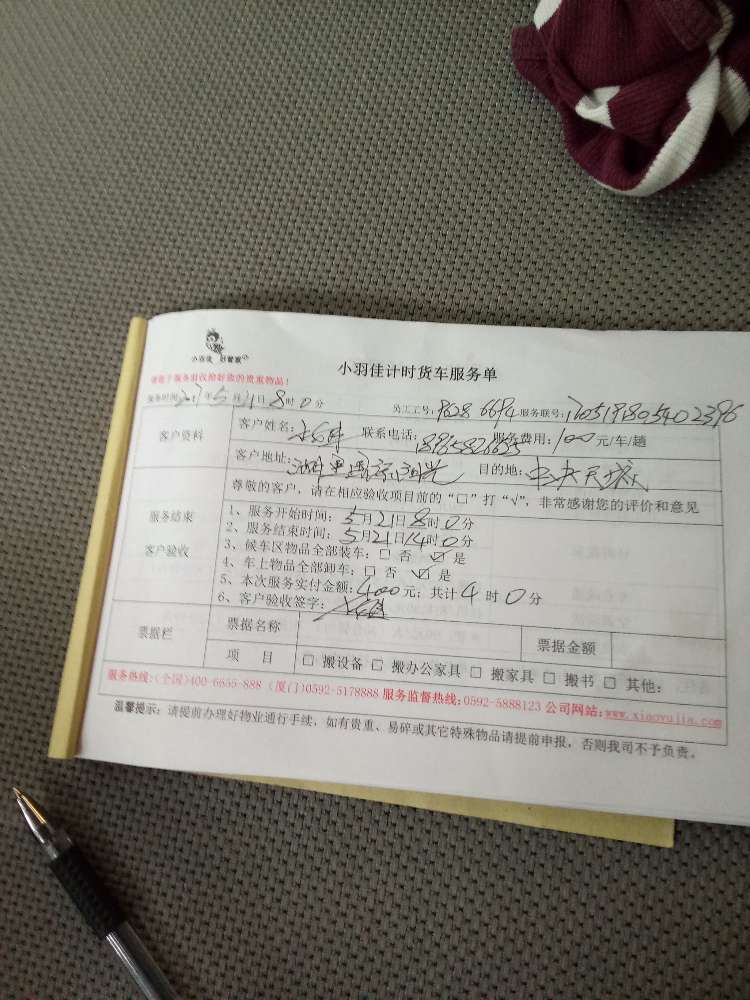 小羽佳 好管家
小羽佳计时货车服务单
请客户服务前收捡好您的贵重物品!
服务时间:2017年5月21日8时0分 员工工号:9628 6694 服务联号:1705191805402396
客户资料 客户姓名: 联系电话: 服务费用:100元/车/趟
客户地址: 目的地:
服务结束 客户验收 尊敬的客户,请在相应验收项目前的“□”打“√”,非常感谢您的评价和意见
1、服务开始时间:5月21日8时0分
2、服务结束时间:5月21日14时0分
3、候车区物品全部装车:□ 否 ☑ 是
4、车上物品全部卸车:□ 否 ☑ 是
5、本次服务实付金额:400元;共计4时0分
6、客户验收签字:
票据栏 票据名称 票据金额
项 目 □ 搬设备 □ 搬办公家具 □ 搬家具 □ 搬书 □ 其他:
服务热线:(全国)400-6655-888 (厦门)0592-5178888 服务监督热线:0592-5888123 公司网站:www.xiaoyujia.com
温馨提示:请提前办理好物业通行手续,如有贵重、易碎或其它特殊物品请提前申报,否则我司不予负责。